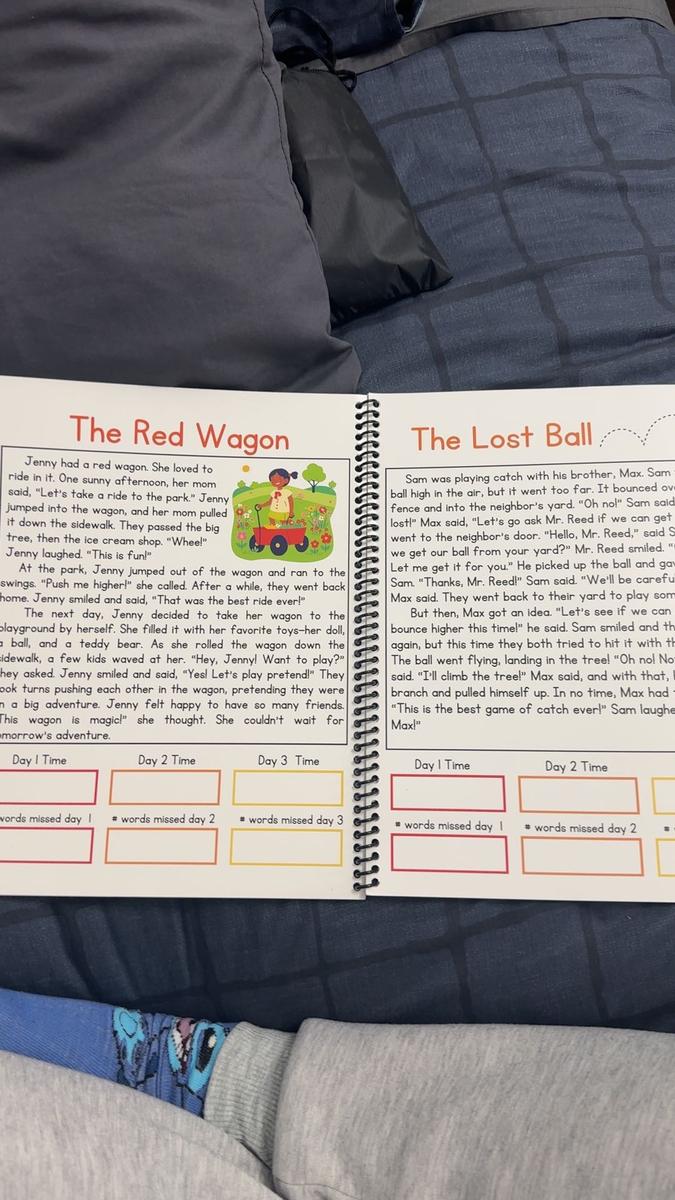 The Red Wagon
Jenny had a red wagon. She loved to
ride in it. One sunny afternoon, her mom
said, "Let's take a ride to the park." Jenny
jumped into the wagon, and her mom pulled
it down the sidewalk. They passed the big
tree, then the ice cream shop. "Whee!"
Jenny laughed. "This is fun!"
At the park, Jenny jumped out of the wagon and ran to the
swings. "Push me higher!" she called. After a while, they went back
home. Jenny smiled and said, "That was the best ride ever!"
The next day, Jenny decided to take her wagon to the
playground by herself. She filled it with her favorite toys—her doll,
a ball, and a teddy bear. As she rolled the wagon down the
sidewalk, a few kids waved at her. "Hey, Jenny! Want to play?"
they asked. Jenny smiled and said, "Yes! Let's play pretend!" They
ook turns pushing each other in the wagon, pretending they were
n a big adventure. Jenny felt happy to have so many friends.
This wagon is magic!" she thought. She couldn't wait for
omorrow's adventure.
Day 1 Time
Day 2 Time
Day 3 Time
words missed day 1
# words missed day 2
# words missed day 3
The Lost Ball
Sam was playing catch with his brother, Max. Sam
ball high in the air, but it went too far. It bounced ov
fence and into the neighbor's yard. "Oh no!" Sam said
lost!" Max said, "Let's go ask Mr. Reed if we can get
went to the neighbor's door. "Hello, Mr. Reed," said S
we get our ball from your yard?" Mr. Reed smiled. "
Let me get it for you." He picked up the ball and ga
Sam. "Thanks, Mr. Reed!" Sam said. "We'll be carefu
Max said. They went back to their yard to play som
But then, Max got an idea. "Let's see if we can
bounce higher this time!" he said. Sam smiled and th
again, but this time they both tried to hit it with th
The ball went flying, landing in the tree! "Oh no! No
said. "I'll climb the tree!" Max said, and with that,
branch and pulled himself up. In no time, Max had
"This is the best game of catch ever!" Sam laughe
Max!"
Day 1 Time
Day 2 Time
# words missed day 1
# words missed day 2
#